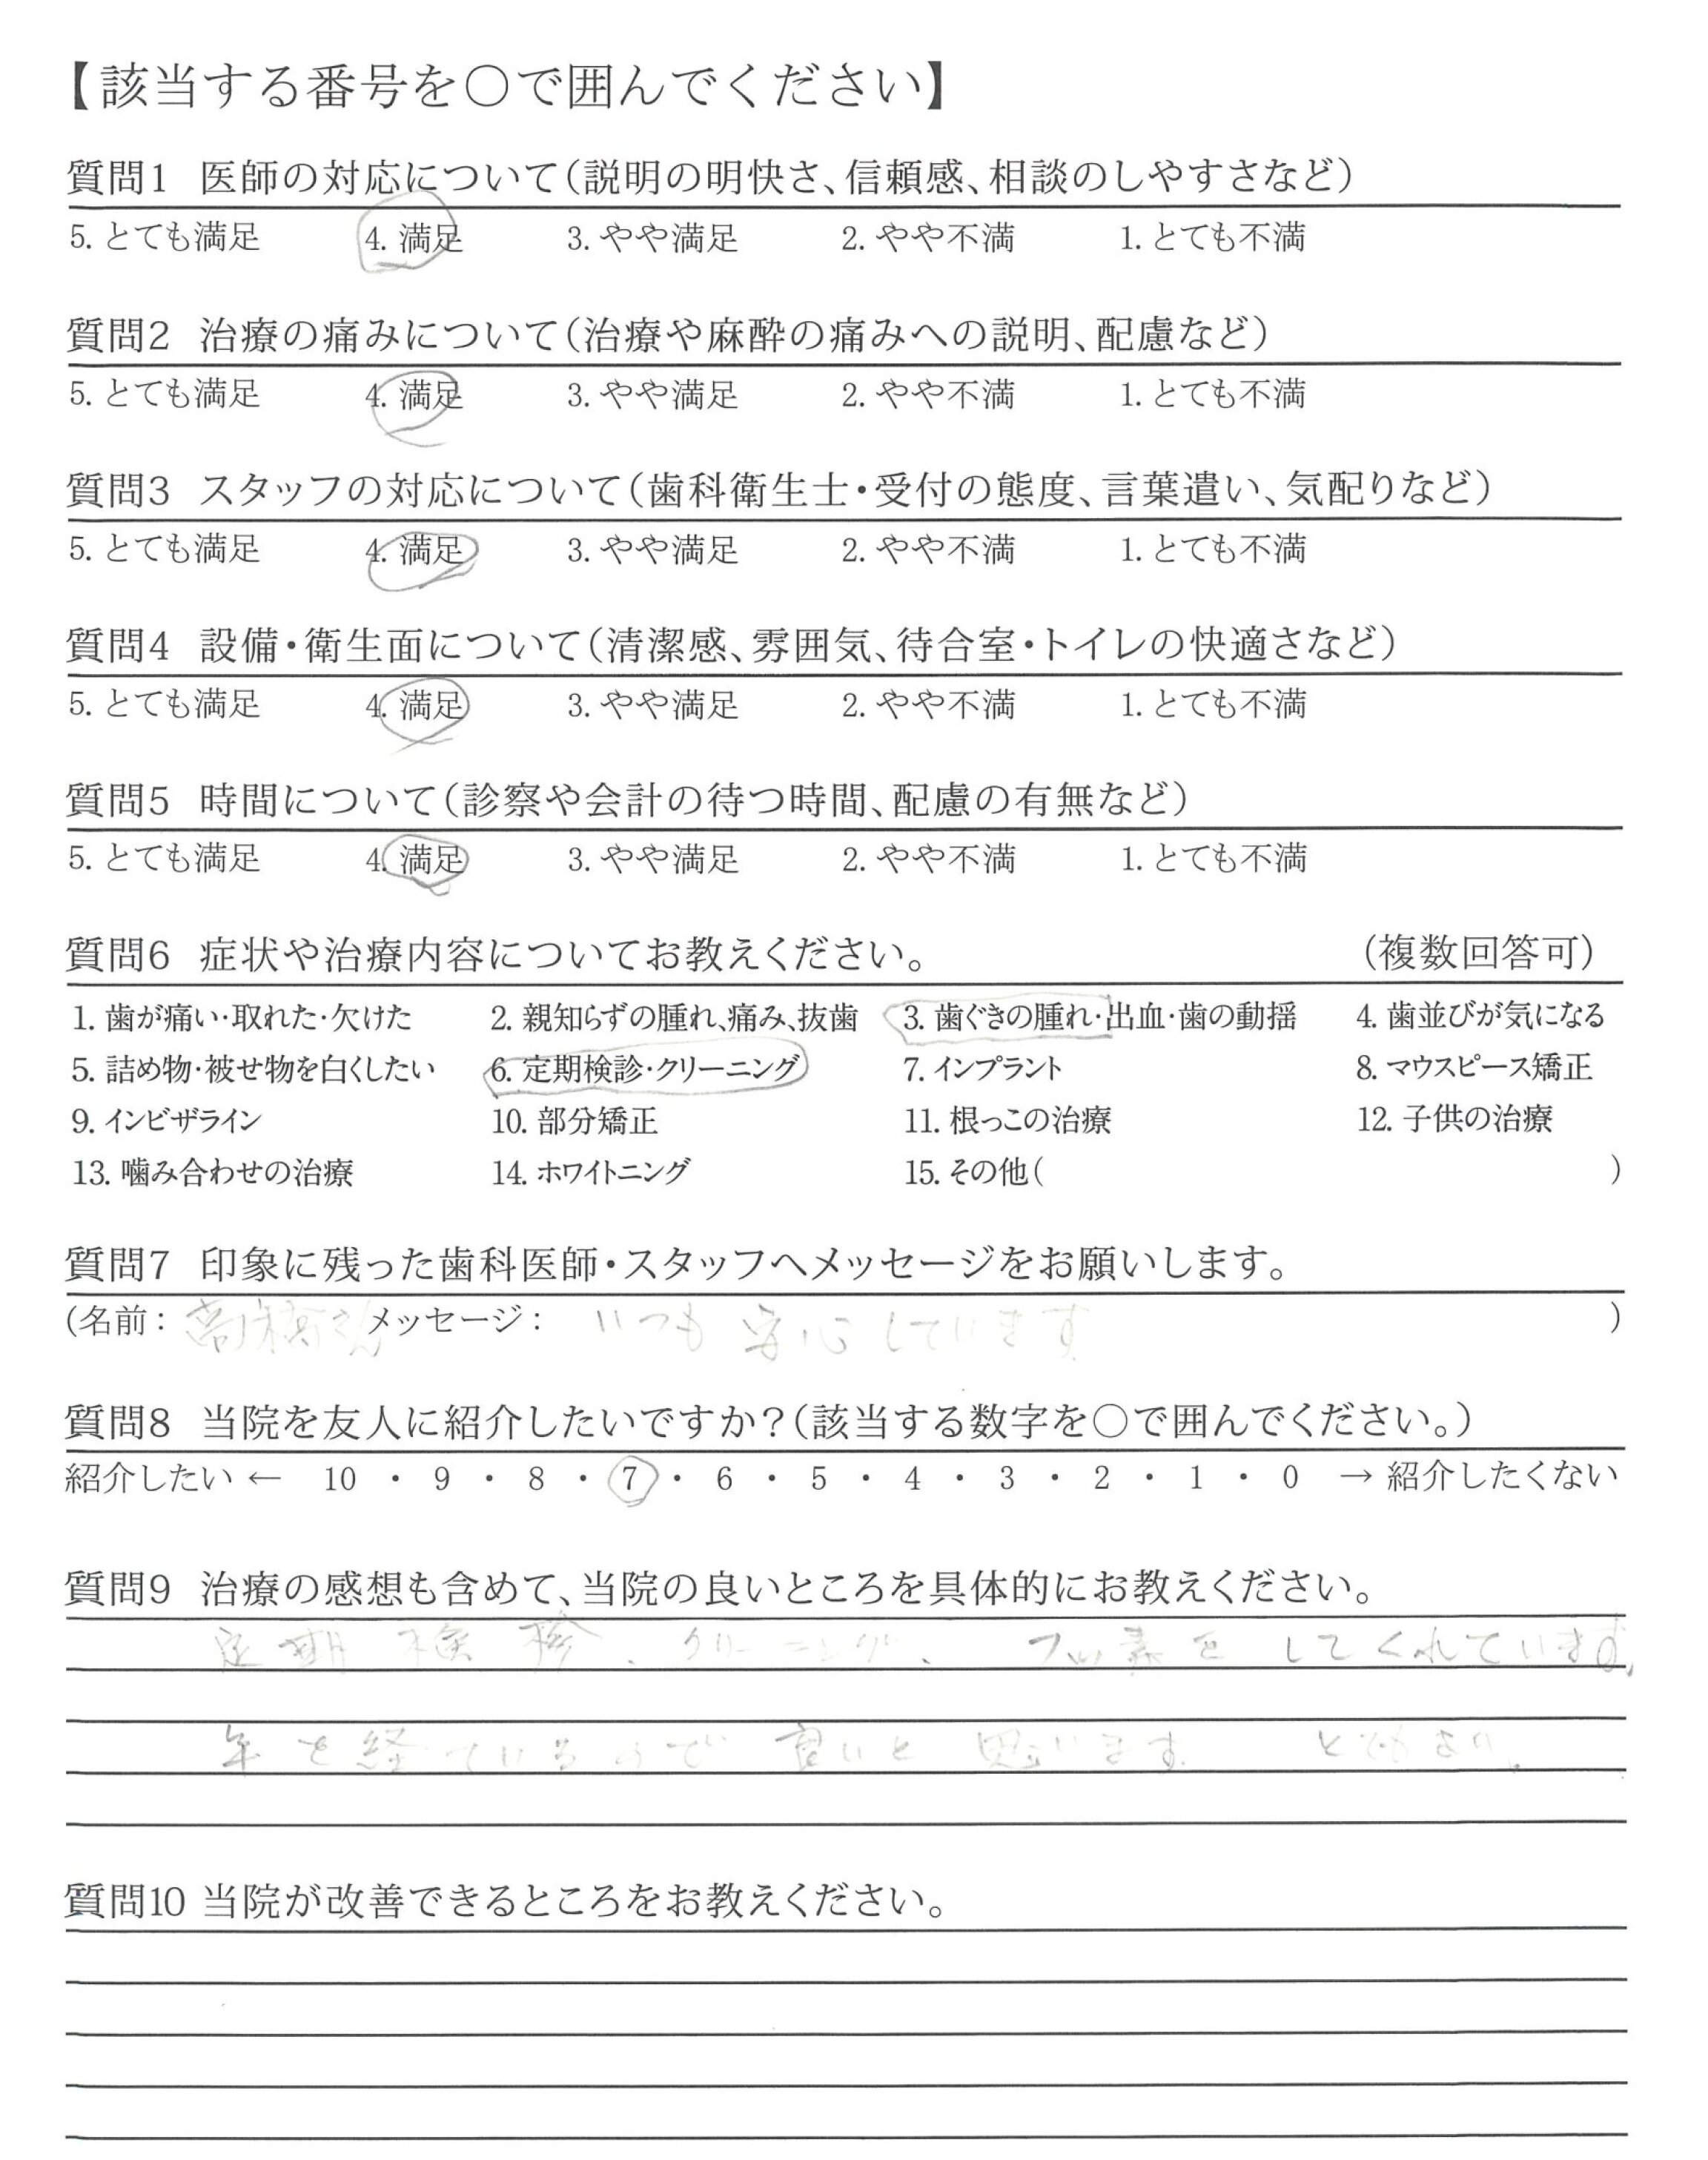 【該当する番号を○で囲んでください】
質問1 医師の対応について(説明の明快さ、信頼感、相談のしやすさなど)
5. とても満足 4. 満足 3. やや満足 2. やや不満 1. とても不満
質問2 治療の痛みについて(治療や麻酔の痛みへの説明、配慮など)
5. とても満足 4. 満足 3. やや満足 2. やや不満 1. とても不満
質問3 スタッフの対応について(歯科衛生士・受付の態度、言葉遣い、気配りなど)
5. とても満足 4. 満足 3. やや満足 2. やや不満 1. とても不満
質問4 設備・衛生面について(清潔感、雰囲気、待合室・トイレの快適さなど)
5. とても満足 4. 満足 3. やや満足 2. やや不満 1. とても不満
質問5 時間について(診察や会計の待つ時間、配慮の有無など)
5. とても満足 4. 満足 3. やや満足 2. やや不満 1. とても不満
質問6 症状や治療内容についてお教えください。 (複数回答可)
1. 歯が痛い・取れた・欠けた 2. 親知らずの腫れ、痛み、抜歯 3. 歯ぐきの腫れ・出血・歯の動揺 4. 歯並びが気になる
5. 詰め物・被せ物を白くしたい 6. 定期検診・クリーニング 7. インプラント 8. マウスピース矯正
9. インビザライン 10. 部分矯正 11. 根っこの治療 12. 子供の治療
13. 噛み合わせの治療 14. ホワイトニング 15. その他( )
質問7 印象に残った歯科医師・スタッフへメッセージをお願いします。
(名前: 高橋さん メッセージ: いつも安心しています )
質問8 当院を友人に紹介したいですか?(該当する数字を○で囲んでください。)
紹介したい ← 10 ・ 9 ・ 8 ・ 7 ・ 6 ・ 5 ・ 4 ・ 3 ・ 2 ・ 1 ・ 0 → 紹介したくない
質問9 治療の感想も含めて、当院の良いところを具体的にお教えください。
定期検診、クリーニング、フッ素をしてくれています。
年を経ているので良いと思います
質問10 当院が改善できるところをお教えください。